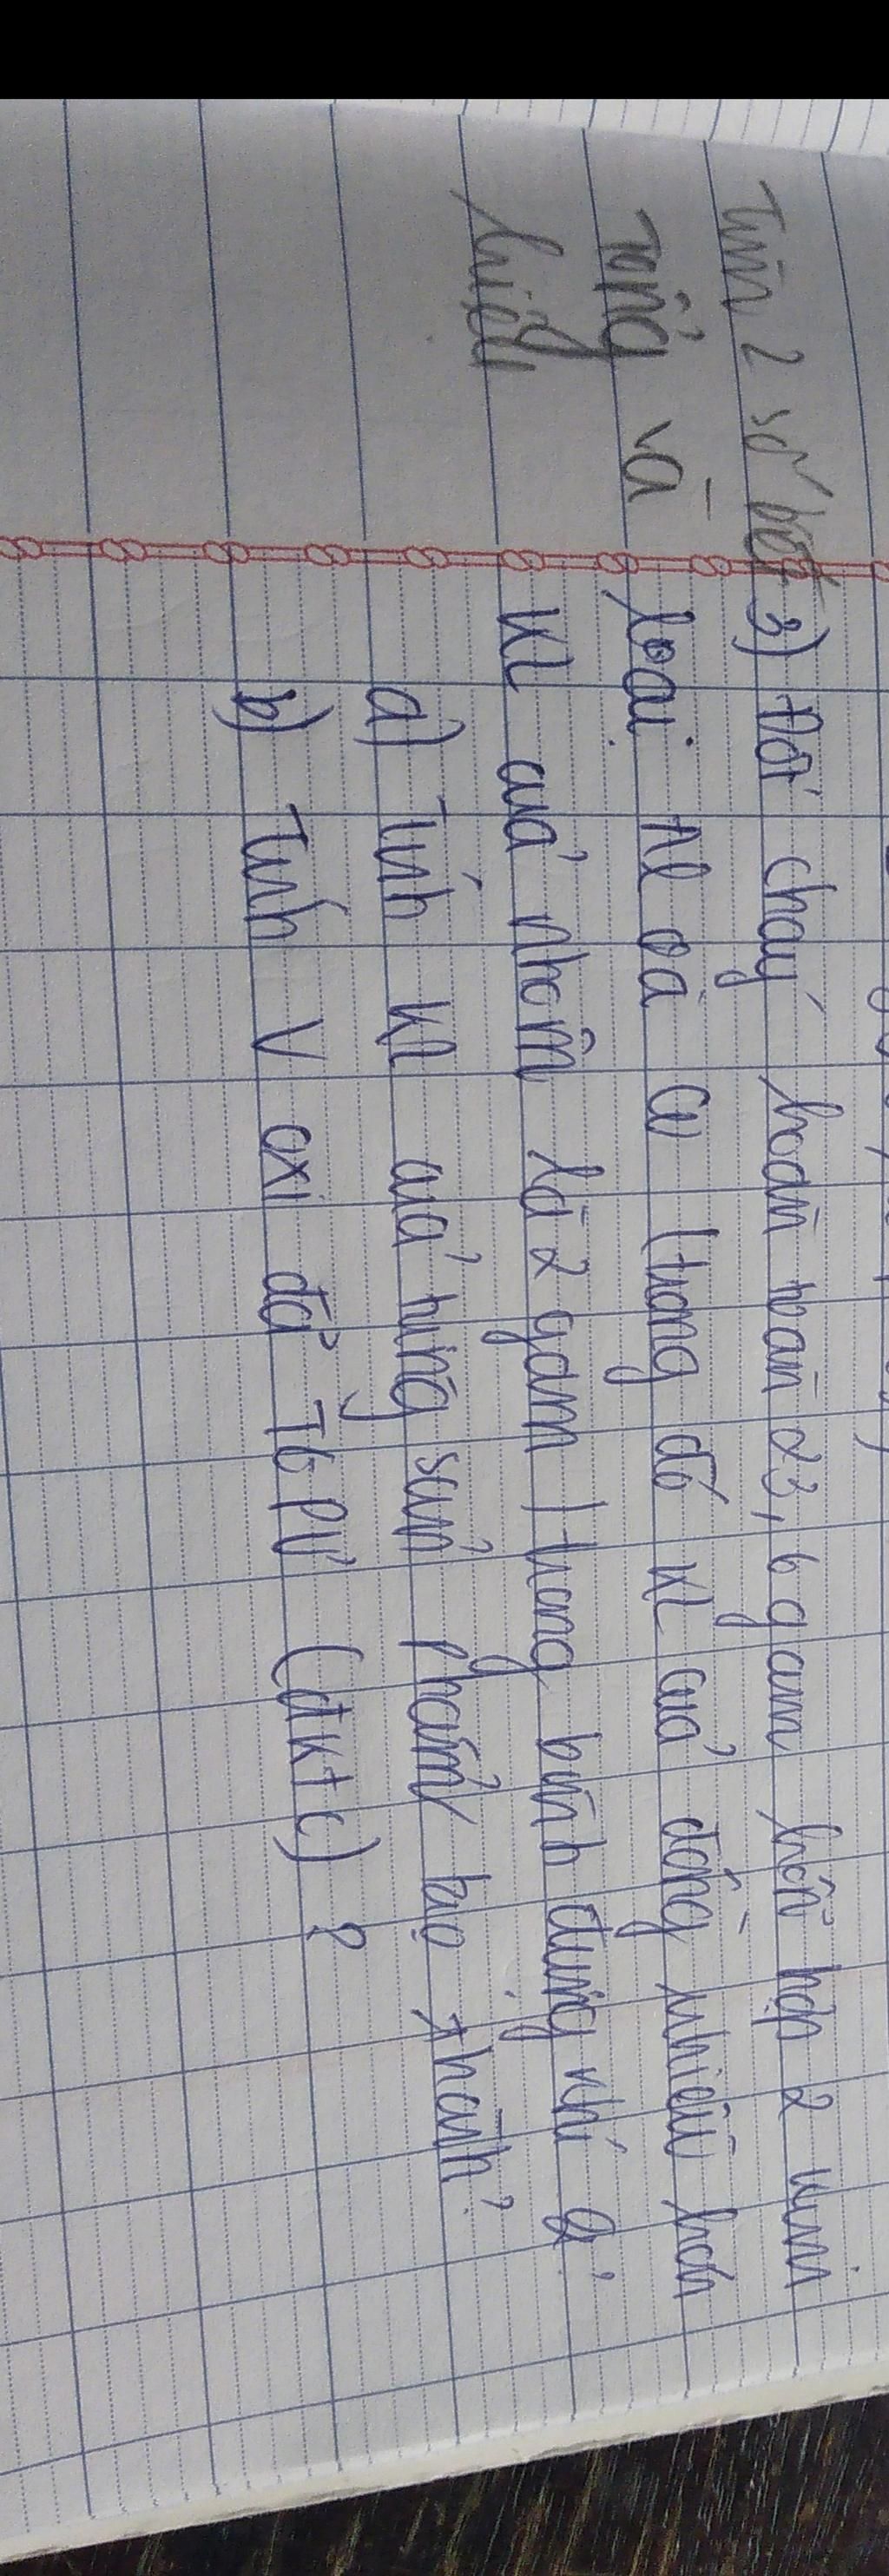 Tìm 2 số biết
tổng và
hiệu
3) Đốt cháy hoàn toàn 23,6 gam hỗn hợp 2 kim
loại Al và Cu trong đó KL của đồng nhiều hơn
KL của nhôm là 2 gam trong bình đựng khí
a) Tính KL của từng sản phẩm tạo thành?
b) Tính V oxi đã TGPƯ (đktc) ?